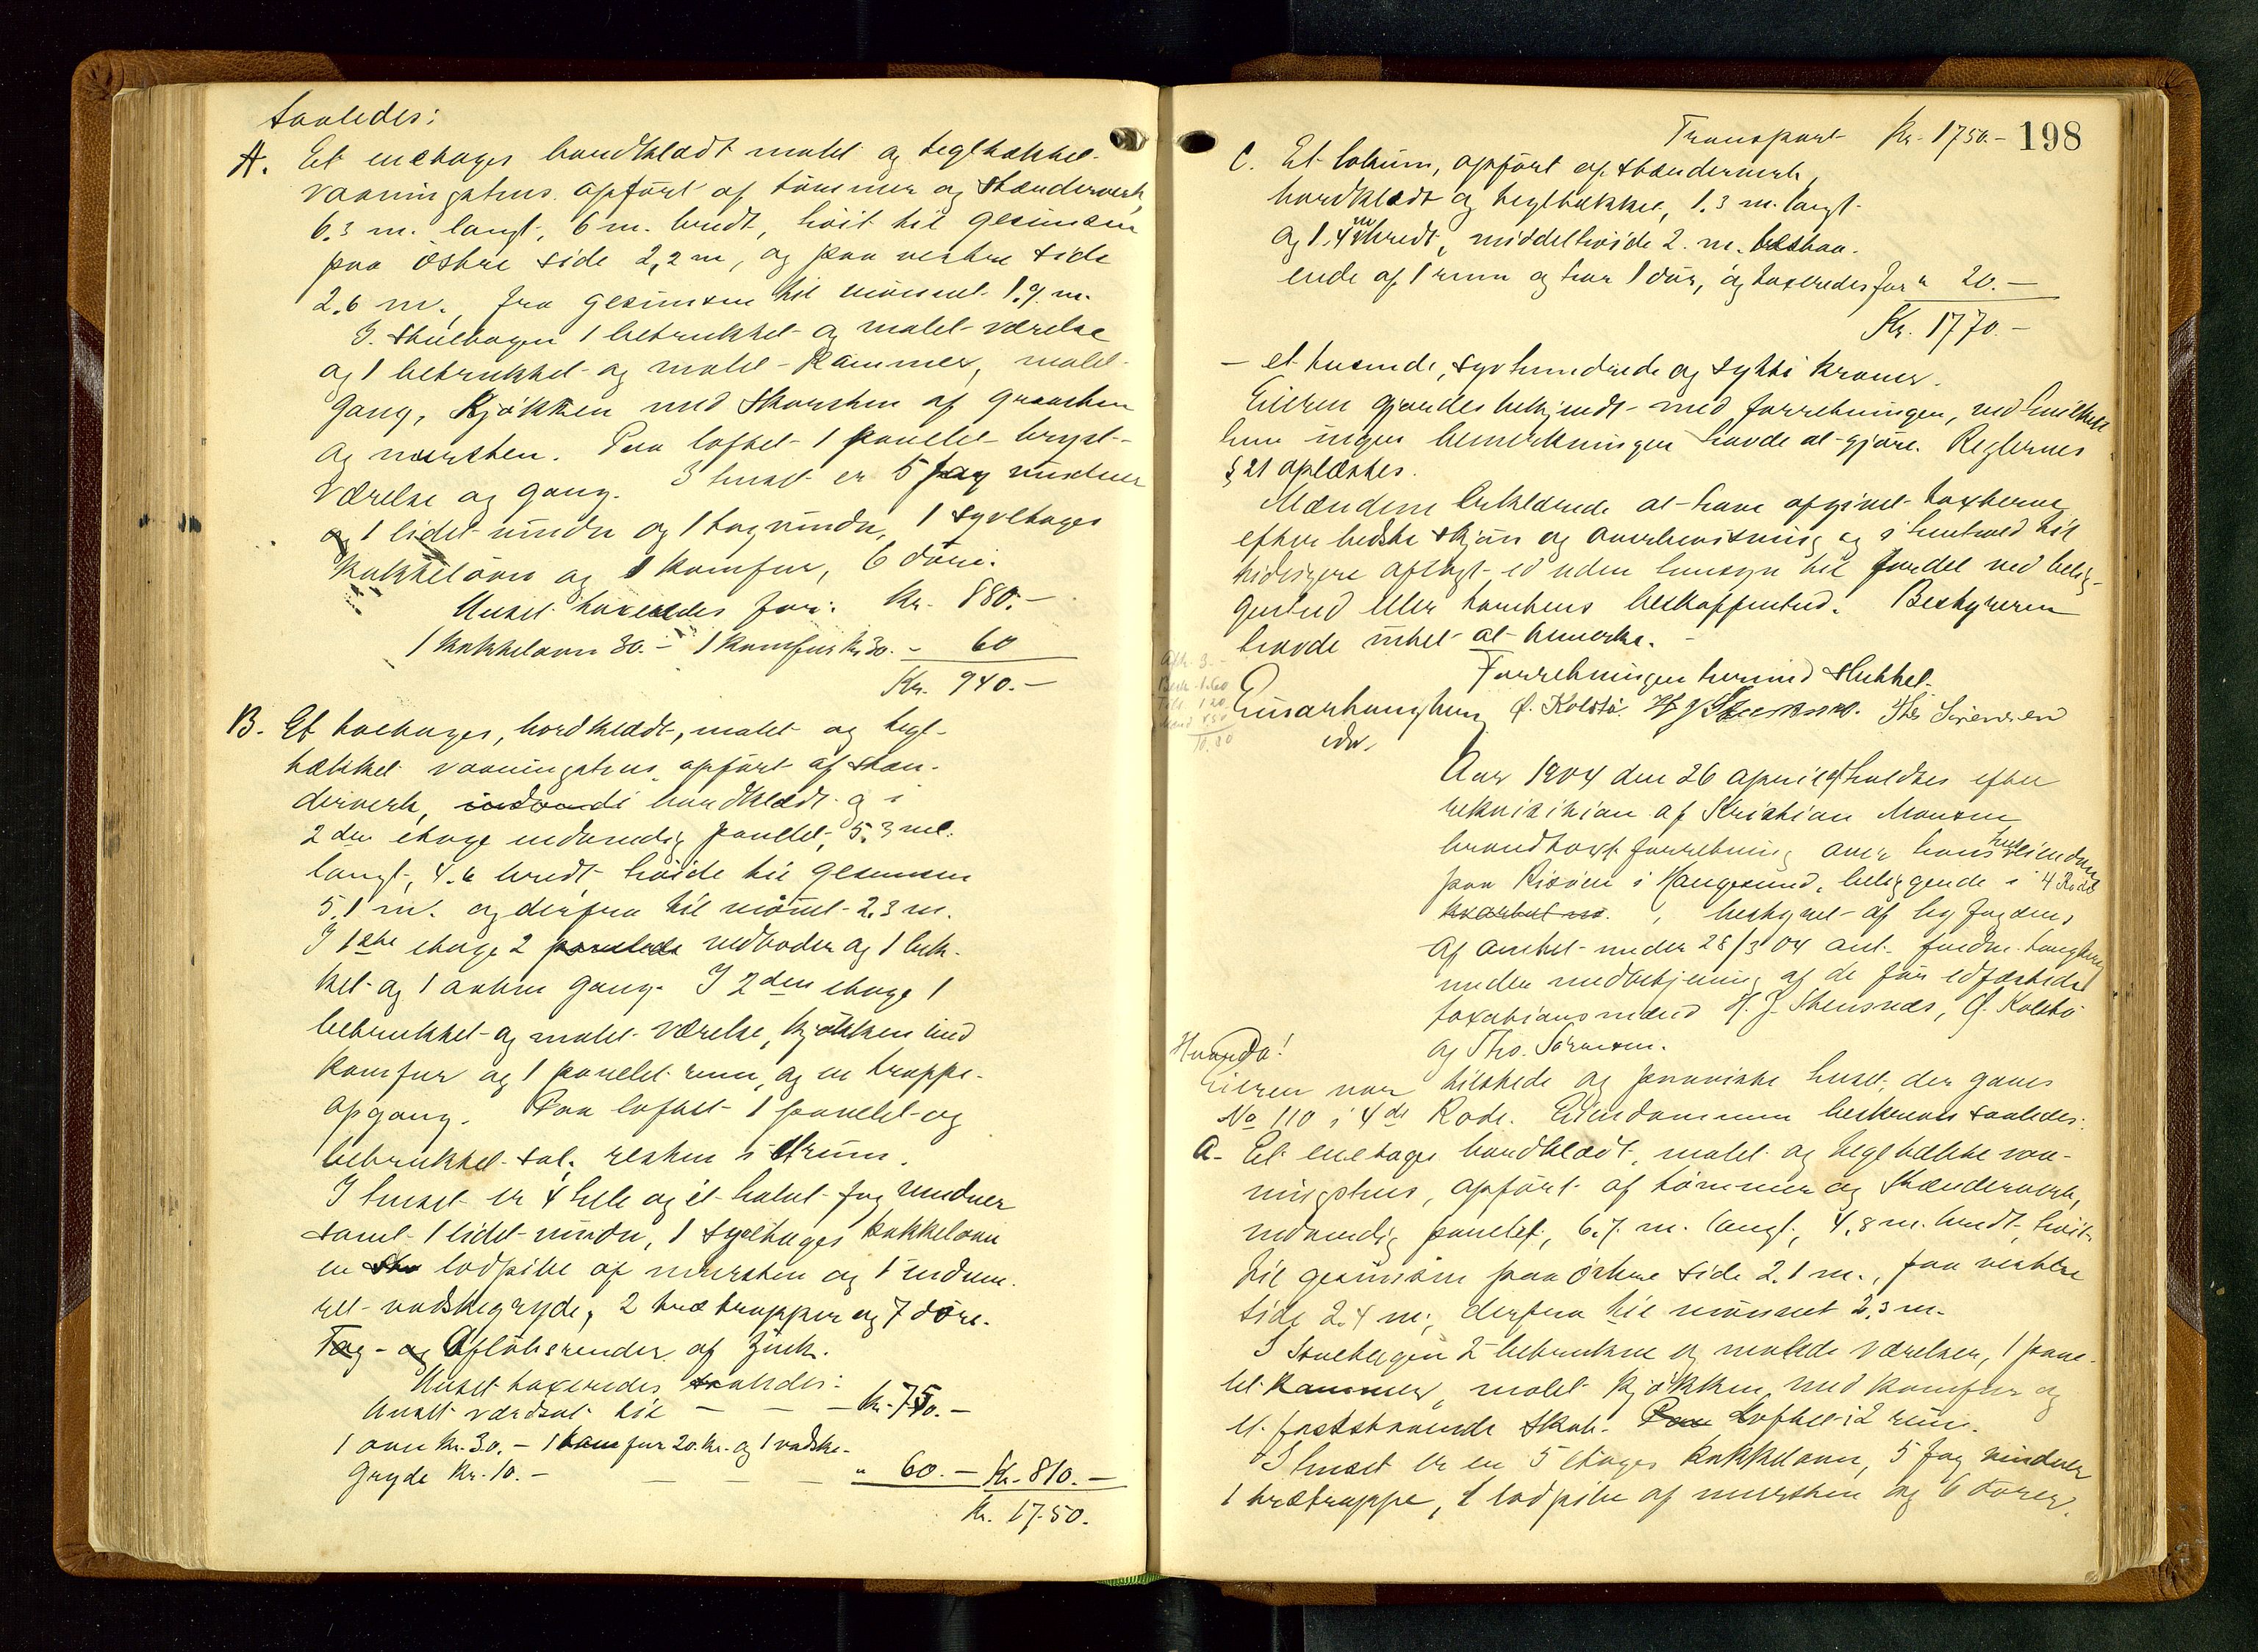 saaledes:
A. Et enetages bordklædt malet og teglhækket
vaaningshus opført af tømmer og Stænderverk,
6.3 m. langt, 6 m. bredt, høit til gesimsen
paa østre side 2,2 m, og paa vestre side
2.6 m., fra gesimsen til mønnet 1.9 m.
I Stueetagen 1 betrukket og malet værelse
og 1 betrukket og malet Kammer, malet
Gang, Kjøkken med Skorsten af graasten
og mursten. Paa loftet 1 panelet kryst-
værelse og gang. I huset er 5 fag vinduer
og 1 lidet vindu og 1 tagvindu, 1 syvetages
Kakkelovn og 1 komfur, 6 døre.
Huset taxeredes for: Kr. 880.-
1 kakkelovn 30.- 1 komfur kr. 30. - 60
Kr. 940.-
B. Et toetages, bordklædt, malet og tegl-
hækket vaaningshus, opført af stæn-
derverk, bordklædt og i
2den etage indvendig panelet, 5.3 m.
langt, 4.6 bredt, høide til gesimsen
5.1 m. og derfra til mønet 2.3 m.
I 1ste etage 2 panelede vedboder og 1 luk-
ket og 1 aaben gang. I 2den etage 1
betrukket og malet værelse, kjøkken med
komfur og 1 panelet rum, og en trappe-
opgang. Paa loftet 1 panelet og
betrukket sal, resten i et rum.
I huset er 4 hele og et halvt fag vinduer
samt 1 lidet vindu, 1 syvetages kakkelovn
en lodpibe af mursten og 1 indmu-
ret vadskegryde, 2 trætrapper og 7 døre.
Tag- og Afløbsrender af Zink.
Huset taxeredes saaledes:
Huset værdsat til - - - kr. 750.-
1 ovn kr. 30.- 1 komfur 20. kr. og 1 vadske-
gryde kr. 10.- " 60.- Kr. 810.-
Kr. 1750.
198
Transport Kr. 1750.-
C. Et lokum, opført af stænderverk,
bordklædt og teglhækket, 1.3 m. langt
og 1.4 m bredt, middelhøide 2. m. bestaa-
ende af 1 rum og har 1 dør, og taxeredes for " 20.-
Kr. 1770.-
- et tusinde, syvhundrede og sytti kroner.
Eieren gjordes bekjendt med forretningen, ved hvilken
han ingen bemerkninger havde at gjøre. Reglernes
§ 21 oplæstes.
Mændene erklærede at have afgivet taxterne
efter bedste skjøn og overbevisning og i henhold til
tidligere aflagt ed uden hensyn til fordel ved belig-
genhed eller tomtens beskaffenhed. Bestyreren
havde intet at bemerke.
Forretningen hermed sluttet.
Einar Langberg Ø. Kolstø. H J Stensnæs. Ths Sørensen
edv.
10.80
Aar 1904 den 26 april afholdtes efter
rekvisition af Kristian Monsen
brandtaxt forretning over hans huseiendom
paa Risøen i Haugesund, beliggende i 4 Rode
, bestyret af byfogden,
af amtet under 28/3 04 ant. fuldm. Langberg
under medbetjening af de før edfæstede
taxationsmænd H. J. Stensnæs, Ø. Kolstø
og Tho. Sørensen.
Hvorda!
Eieren var tilstede og paaviste huset, der gaves
No 110 i 4de Rode. Eiendommen beskreves saaledes:
A. Et enetages bordklædt, malet og teglhækket vaa-
ningshus, opført af tømmer og Stænderverk,
indvendig panelet, 6.7. m. langt, 4.8 m. bredt, høit
til gesimsen paa østre side 2.1 m., paa vestre
side 2.4 m., derfra til mønnet 2.3 m.
I Stueetagen 2 betrukne og malede værelser, 1 pane-
let Kammer, malet kjøkken med komfur og
et faststaaende skab. Loftet i 2 rum.
I huset er en 5 etages kakkelovn, 5 fag vinduer
1 trætrappe, 1 lodpibe af mursten og 6 dører.